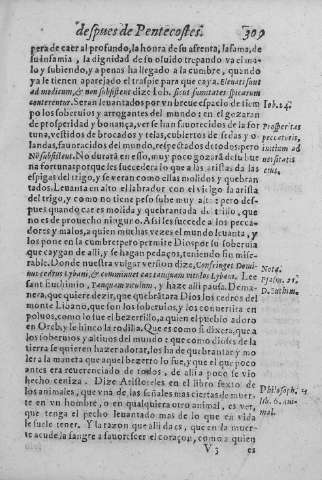 despues de Pentecostes. 309
pera de caer al profundo, la honra de su afrenta, la fama, de
su infamia, la dignidad de su oluido trepando va el ma-
lo y subiendo, y apenas ha llegado a la cumbre, quando
ya le tienen aparejado el traspie para que cayga. Eleuati sunt
ad modicum, & non subsistent dize Iob. sicut sumitates spicarum
conterentur. Seran leuantados por vn breue espacio de tiem
po los soberuios y arrogantes del mundo: en el gozaran
de prosperidad y bonança, verse han fauorecidos de la for
tuna, vestidos de brocados y telas, cubiertos de sedas y o
landas, fauorecidos del mundo, respectados de todos pero
Nō subsistent. No durata en esto, muy poco gozará de su bue
na fortuna porque les succederá lo que a las aristas de las
espigas del trigo, y seran como ellas molidos y quebran
tados. Leuanta en alto el labrador con el vieldo la arista
del trigo, y como no tiene peso sube muy alta: pero des-
pues quando cae es molida y quebrantada de trillo, que
no es de prouecho ninguno. Assi les succede a los pecca-
dores y malos, a quien muchas vezes el mundo leuanta, y
los pone en la cumbre: pero permite Dios por su soberuia
que caygan de alli, y se hagan pedaços, teniendo fin mise-
rable. Donde nuestra vulgar version dize, Confringet Domi-
nus cedros Lybani, & comminuet eas tanquam vitulos Lybani. Lee
sant Euthimio, Tanquam vitulum, y haze alli pausa. De ma-
nera, que quiere dezir, que quebrãtara Dios los cedros del
monte Libano, que son los soberuios, y los conuertira en
poluos, como lo fue el bezerrillo, a quien el pueblo adoro
en Oreb, y se hinco la rodilla. Que es como si dixera, que a
los soberuios y altiuos del mundo: e que como dioses de la
tierra se quieren hazer adorar, los ha de quebrantar y mo
ler a la manera que aquel bezerro lo fue, y el que que poco
antes era reuerenciado de todos, de alli a poco se vio
hecho ceniza. Dize Aristoteles en el libro sexto de
los animales, que vna de las señales mas ciertas de muer
te en vn hombre, o en qualquiera otro animal, es ver,
que tenga el pecho leuantado mas de lo que en vida
le suele tener. Y la razon que alli da es, que en la muer-
te acude la sangre a fauorescer el coraçon, como a quien
V 3 es
Iob. 24.
Prosperitas
peccatoris,
initium ad
uersitatis
eius.
Nota.
Psalm. 28.
D. Euthim.
Philosoph.
lib. 6. ani-
mal.